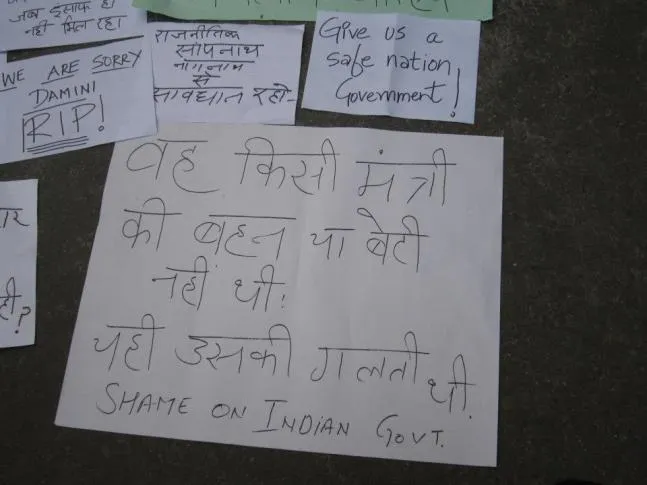 जब इंसाफ ही
नहीं मिल रहा
WE ARE SORRY
DAMINI
RIP!
राजनीतिक
सांपनाथ
नागनाथ
से
सावधान रहो-
Give us a
safe nation
Government!
वह किसी मंत्री
की बहन या बेटी
नहीं थी!
यही उसकी गलती थी.
SHAME ON INDIAN GOVT.